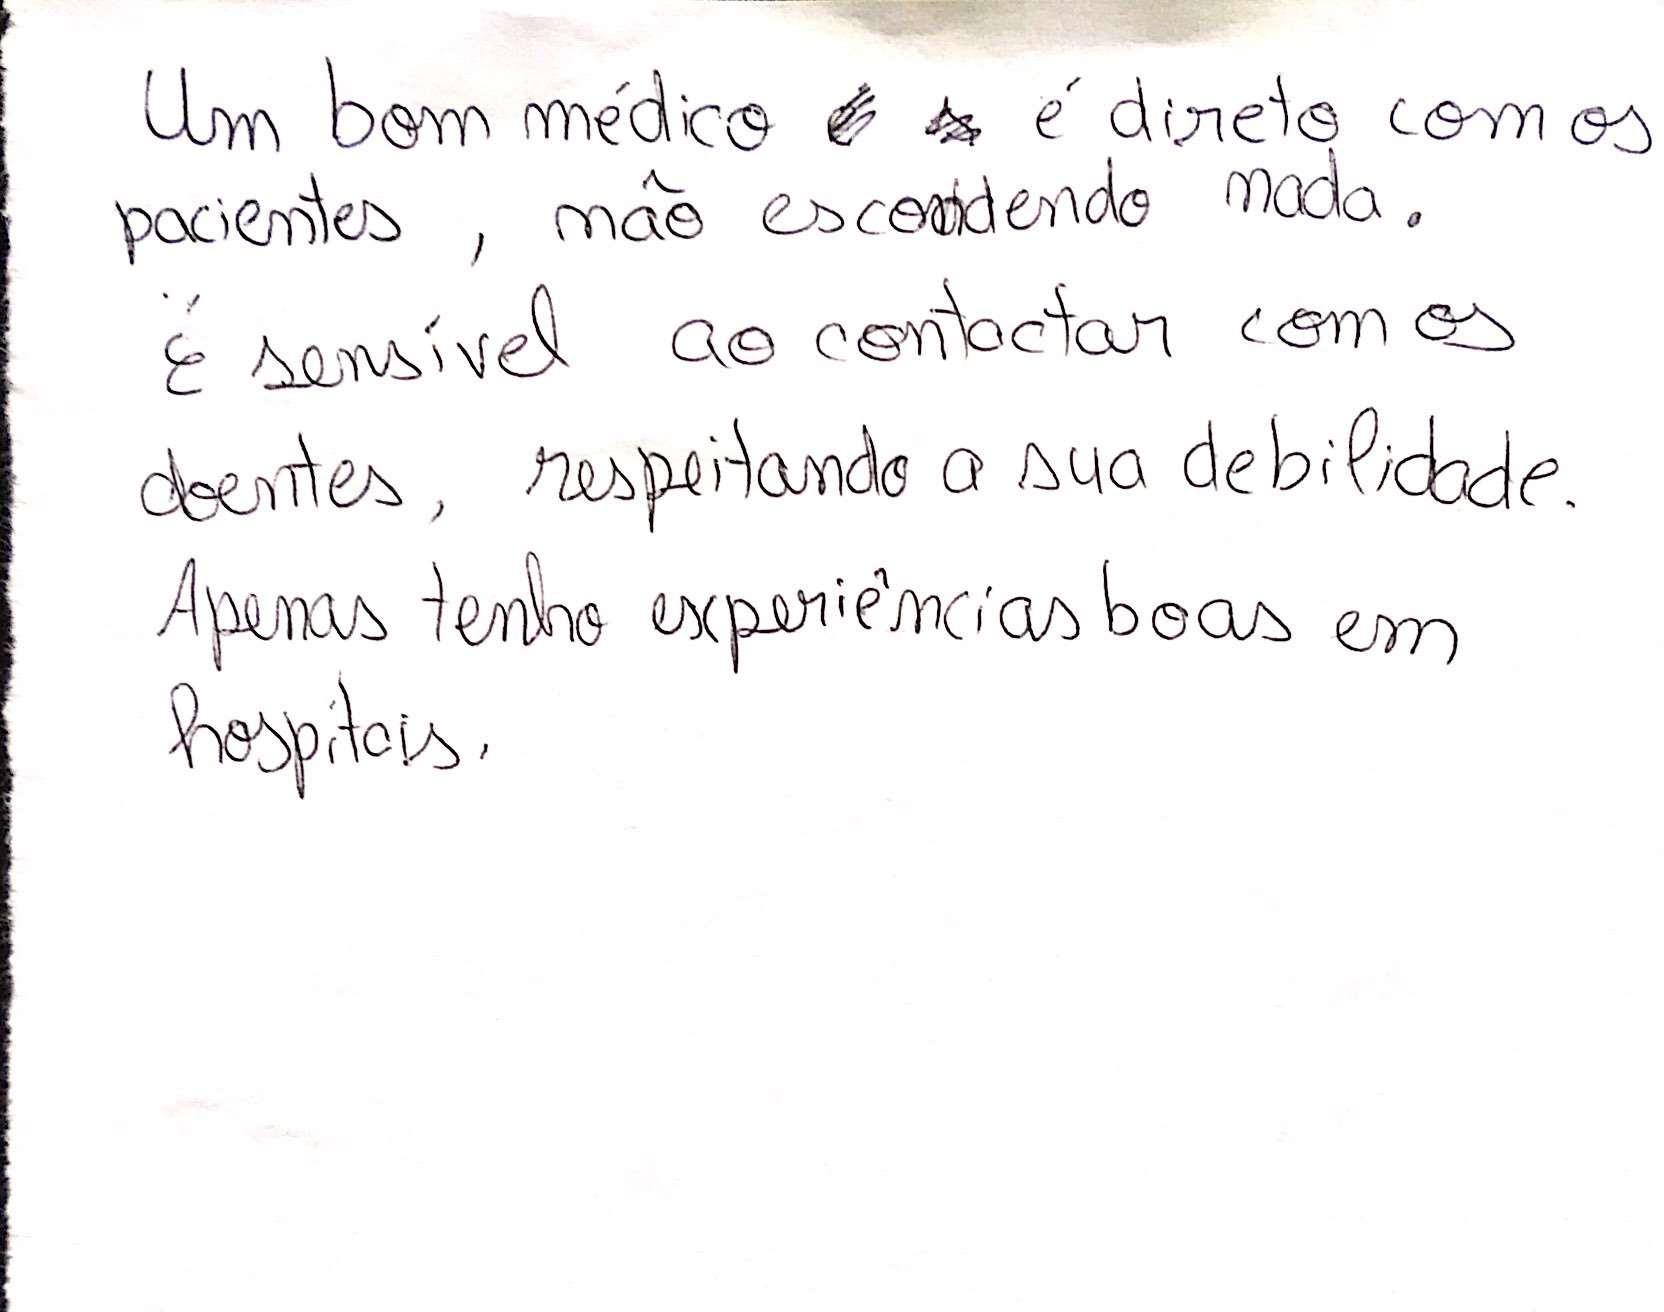 Um bom médico é direto com os
pacientes, não escondendo nada.
É sensível ao contactar com os
doentes, respeitando a sua debilidade.
Apenas tenho experiências boas em
hospitais.